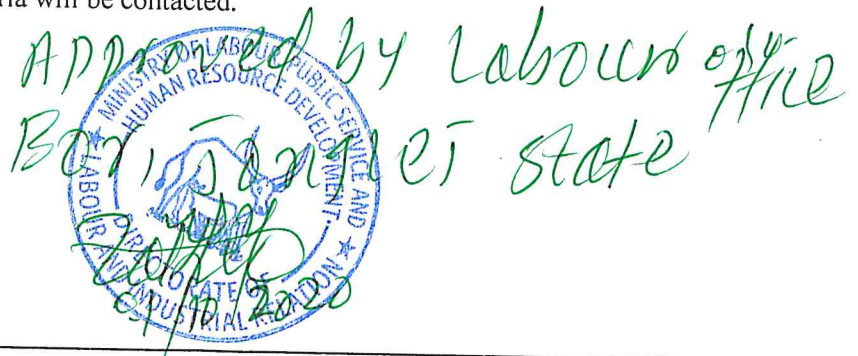 ria will be contacted.
Approved by Labour office
Bor, Jonglei State
MINISTRY OF LABOUR, PUBLIC SERVICE AND
HUMAN RESOURCE DEVELOPMENT.
DIRECTORATE OF
LABOUR AND INDUSTRIAL RELATION
/10/2020